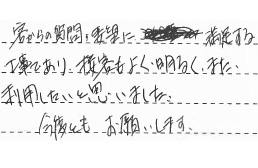 客からの質問・要望に 満足する
工事であり、接客もよく、明るく、また、
利用したいと思いました。
今後とも お願いします。